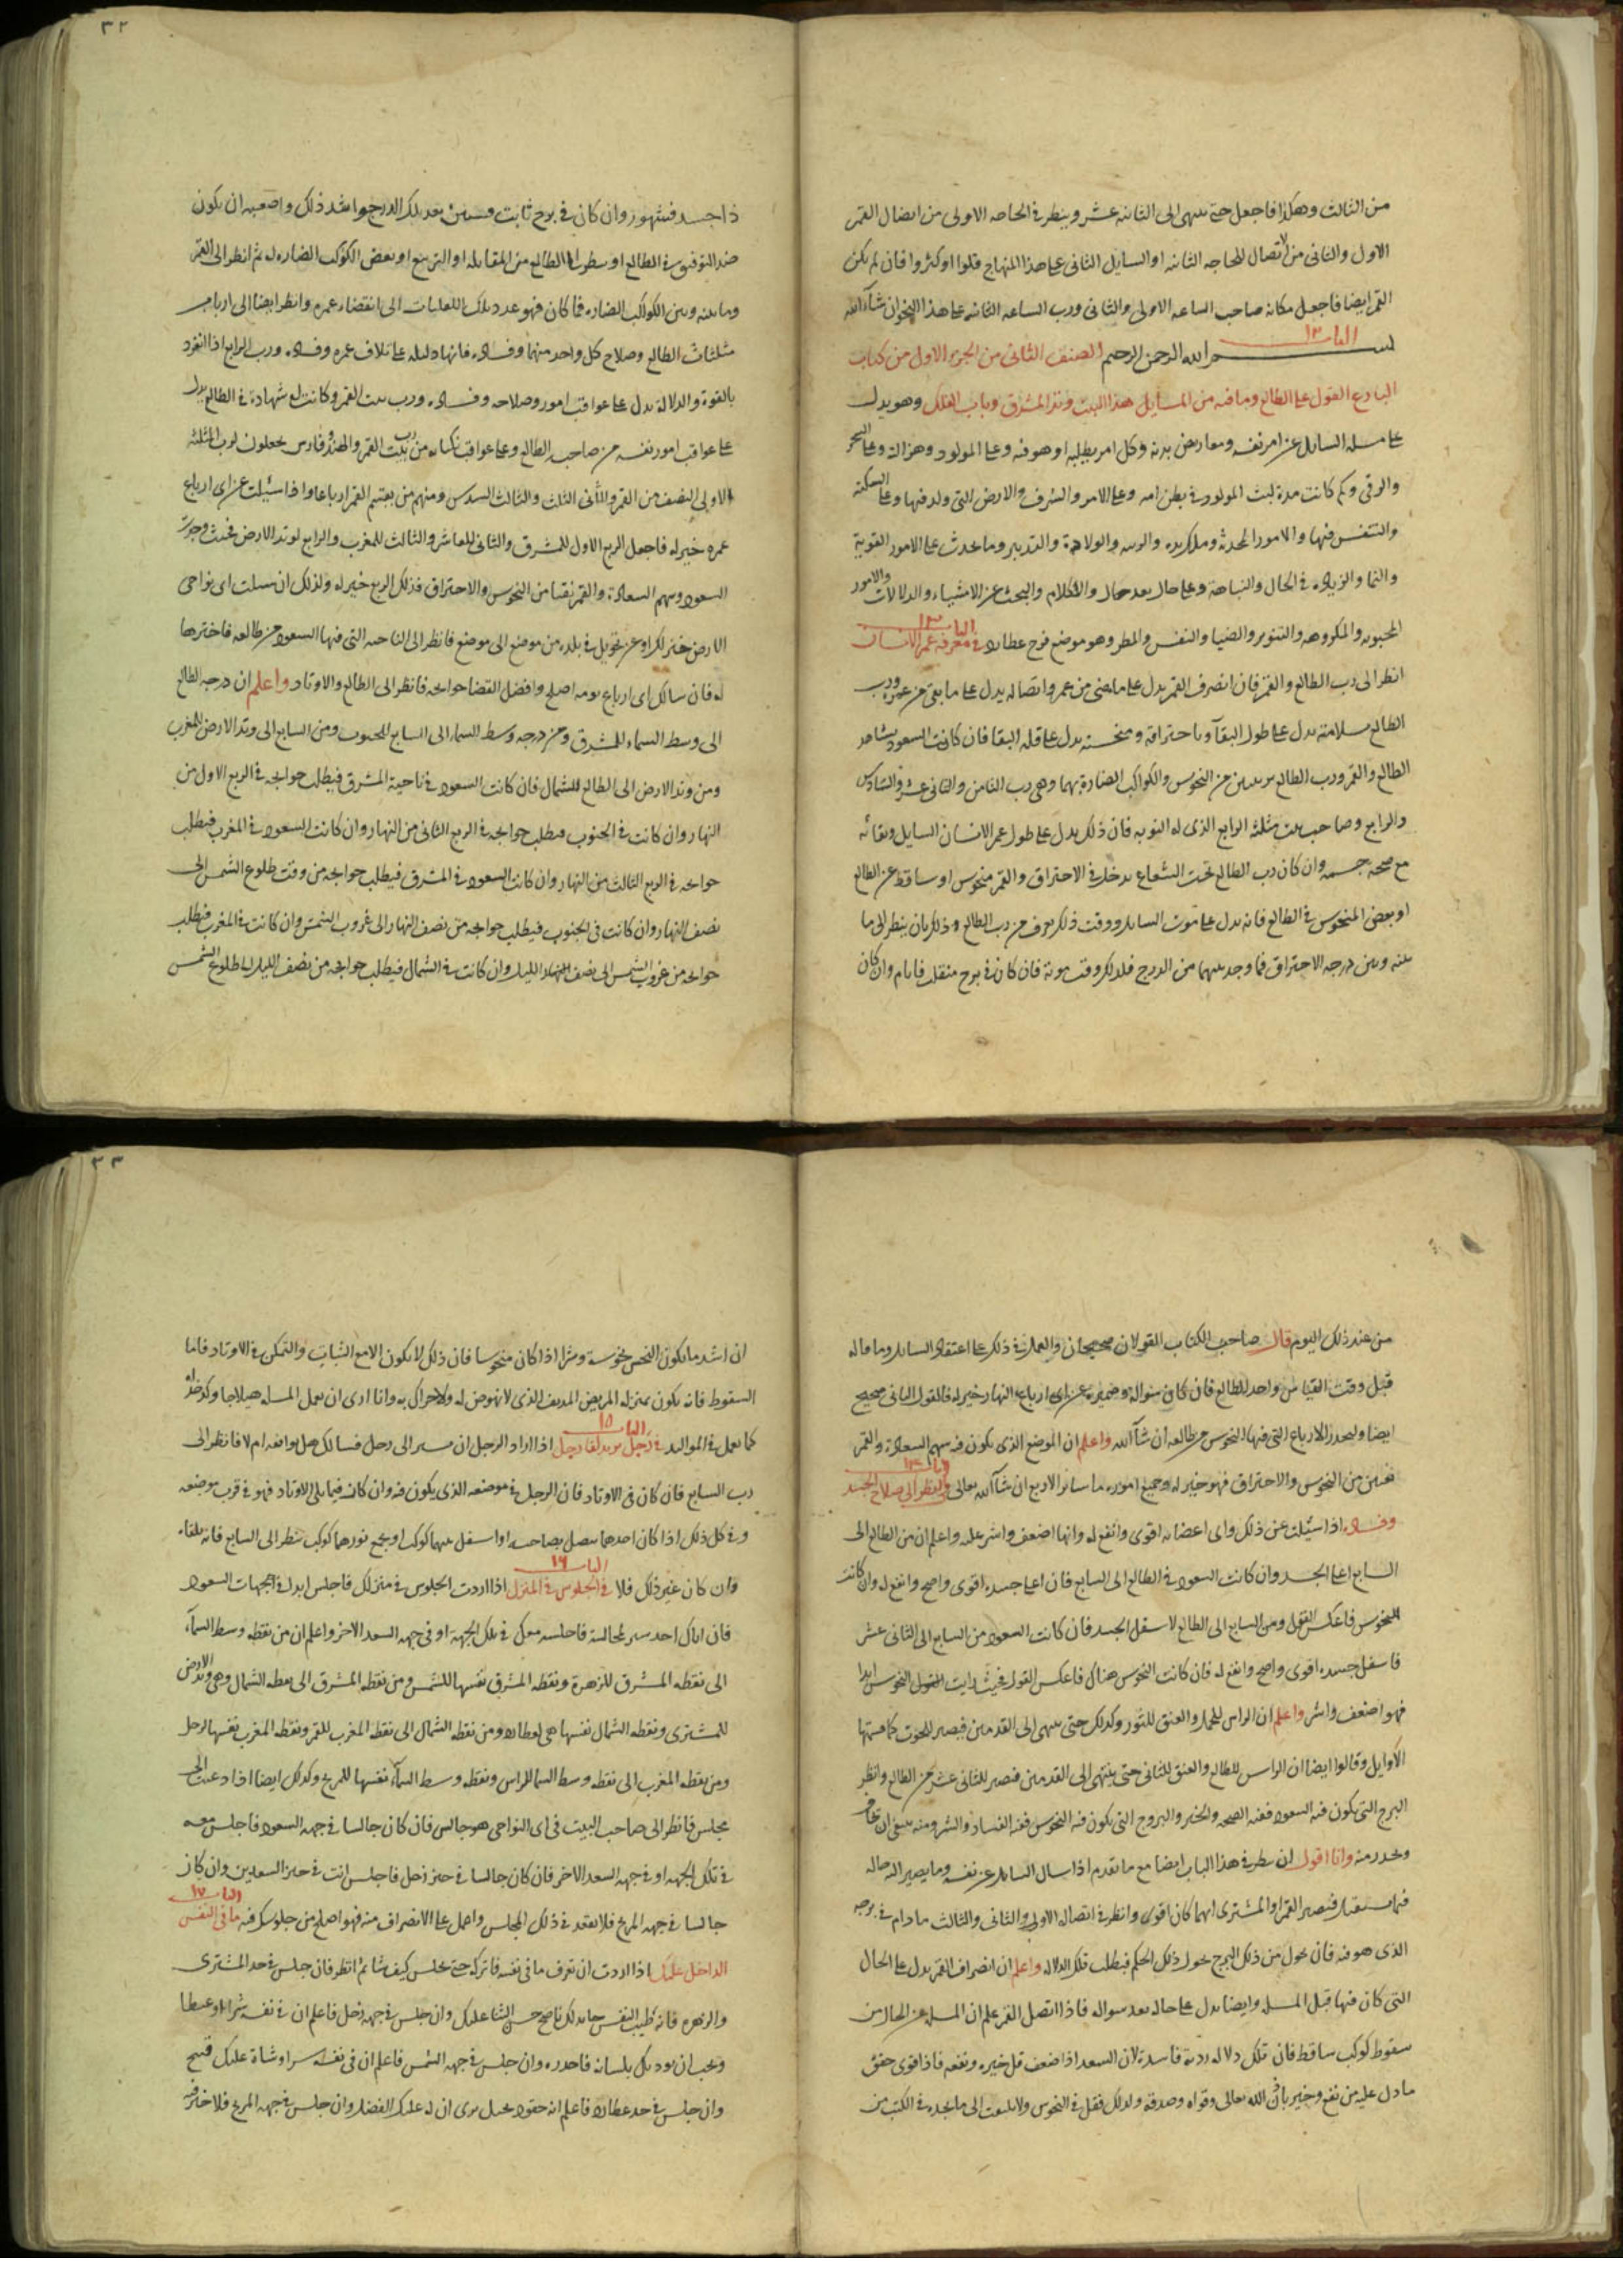 من الثالث وهكذا فاجعل حتى ينتهى الى الثانيه عشر وينظر فى الحاجه الاولى من اتصال القمر
الاول والثانى من الاتصال للحاجه الثانيه او السايل الثانى على هذا المنهاج قلوا او كثروا فان لم يكن
القمر ايضا فاجعل مكانه صاحب الساعه الاولى والثانى ورب الساعه الثانيه على هذا النحو ان شآ الله
الباب ١٢
بسم الله الرحمن الرحيم الصنف الثانى من الجزء الاول من كتاب
البارع القول على الطالع وما فيه من المسايل هذا البيت وتد المشرق وباب الفلك وهو يدل
على مسله السايل عن امر نفسه ومعارض بدنه وكل امر يطلبه او هو فيه وعلى المولود وهزاله وعلى السحر
والرقى وكم كانت مدة لبث المولود فى بطن امه وعلى الامر والشرف والارض التى ولد فيها وعلى السكينه
والتنفس فيها والامور المحدثه وما يريده والولادة والتدبير وما يحدث على الامور القوية
والنما والزياده فى الحال والنباهة وعلى حال بعد حال والكلام والبحث عن الاشياء والدلالات والامور
المحبوبه والمكروهه والتنوير والضيا والنفس والمطر وهو موضع فرح عطارد الباب ١٣ فى معرفة عمر الانسان
انظر الى رب الطالع والقمر فان انصرف القمر يدل على ما مضى من عمره واتصاله يدل على ما بقى من عمره ورب
الطالع سلامته يدل على طول البقآ وباحتراقه ومنحسته يدل على قلة البقا فان كانت السعود تشاهد
الطالع والقمر ورب الطالع بريئين من النحوس والكواكب الضارة بهما وهى رب الثامن والثانى عشر والسادس
والرابع وصاحب بيت مثلثه الرابع الذى له النوبه فان ذلك يدل على طول عمر الانسان السايل وبقائه
مع صحه جسمه وان كان رب الطالع تحت الشعاع يدخل فى الاحتراق والقمر منحوس او ساقط عن الطالع
او بعض المنحوس فى الطالع فانه يدل على موت السايل ووقت ذلك يعرف من رب الطالع وذلك بان ينظر الى ما
بينه وبين درجه الاحتراق فما وجد بينهما من الدرج فلذلك وقت موته فان كان فى برج منقلب فايام وان كان
٣٢
ذا جسد فشهور وان كان فى برج ثابت فسنين بعد تلك الدرج واشد ذلك واصعبه ان يكون
ضد التوفيق فى الطالع او ينظر الى الطالع من المقابله او التربيع او بعض الكواكب الضاره له ثم انظر الى القمر
وما بينه وبين الكواكب الضاره فما كان فهو عدد تلك الى انقضاء عمره وانظر ايضا الى ارباب
مثلثات الطالع وصلاح كل واحد منهما وفساده فانها دليله على تلاف عمره وفساده ورب الرابع اذا انفرد
بالقوة والدلالة يدل على عواقب اموره وصلاحه وفساده ورب بيت القمر وكانت له شهادة فى الطالع يدل
على عواقب امور نفسه من صاحب الطالع وعلى عواقب من رب بيت القمر والهند وفارس يجعلون لرب المثلثه
الاولى النصف من القمر والثانى الثلث والثالث السدس ومنهم من يقسم القمر ارباعا واذا سئلت عن اى ارباع
عمره خير له فاجعل الربع الاول للمشرق والثانى للعاشر والثالث للمغرب والرابع لوتد الارض فحيث وجدت
السعود وسهم السعادة والقمر نقيا من النحوس والاحتراق فذلك الربع خير له ولذلك ان سئلت اى نواحى
الارض خير لك او عن تحويل فى بلده من موضع الى موضع فانظر الى الناحيه التى فيها السعود من طالعه فاخترها
له فان سالك اى ارباع يومه اصلح وافضل لقضا حوايجه فانظر الى الطالع والاوتاد واعلم ان درجه الطالع
الى وسط السماء للمشرق ومن درجه وسط السما الى السابع للجنوب ومن السابع الى وتد الارض للمغرب
ومن وتد الارض الى الطالع للشمال فان كانت السعود فى ناحية المشرق فيطلب حوايجه فى الربع الاول من
النهار وان كانت فى الجنوب فيطلب حوايجه فى الربع الثانى من النهار وان كانت السعود فى المغرب فيطلب
حوايجه فى الربع الثالث من النهار وان كانت السعود فى المشرق فيطلب حوايجه من وقت طلوع الشمس الى
نصف النهار وان كانت فى الجنوب فيطلب حوايجه من نصف النهار الى غروب الشمس وان كانت فى المغرب فيطلب
حوايجه من غروب الشمس الى نصف الليل وان كانت فى الشمال فيطلب حوايجه من نصف الليل الى طلوع الشمس
من عند ذلك اليوم قال صاحب الكتاب القولان صحيحان والعمل فى ذلك على اعتقاد السايل وما قاله
قبل وقت القياس واحد الطالع فان كان سواله وضميره عن اى ارباع النهار خير له فالقول الثانى صحيح
ايضا وليحذر الارباع التى فيها النحوس من طالعه ان شآ الله واعلم ان الموضع الذى يكون فيه سهم السعادة والقمر
نقيين من النحوس والاحتراق فهو خير له وجميع اموره ما سار الاربع ان شآ الله تعالى الباب ١٤ والنظر الى صلاح الجسد
وفساده اذا سئلت عن ذلك واى اعضايه اقوى وانفع له وانها اضعف واشر عليه واعلم ان من الطالع الى
السابع اعلى الجسد وان كانت السعود فى الطالع الى السابع فان اعلى جسده اقوى واصح وانفع له وان كانت
النحوس فاعكس القول ومن السابع الى الطالع لاسفل الجسد فان كانت السعود من السابع الى الثانى عشر
فاسفل جسده اقوى واصح وانفع له فان كانت النحوس هناك فاعكس القول فحيث رايت النحوس ابدا
فهو اضعف واشر واعلم ان الراس للحمل والعنق للثور وكذلك حتى ينتهى الى القدمين فيصير للحوت كما قسمتها
الاوايل وقالوا ايضا ان الراس للطالع والعنق للثانى حتى ينتهى الى القدمين فتصير للثانى عشر من الطالع وانظر
البرج التى يكون فيه السعود ففيه الصحه والخير والبروج التى يكون فيه النحوس ففيه الفساد والشر ومنه ينبغى ان
ويحذر منه وانا اقول ان ينظر فى هذا الباب ايضا مع ما تقدم اذا سال السايل عن نفسه وما يصير اليه حاله
فيما يستقبل فتصير القمر او المشترى ايهما كان اقوى وانظر فى اتصاله الاول والثانى والثالث ما دام فى برجه
الذى هو فيه فان تحول من ذلك البرج تحول ذلك الحكم فبطلت تلك الدلاله واعلم ان انصراف القمر يدل على الحال
التى كان فيها قبل المسله وايضا يدل على حاله بعد سواله فاذا اتصل القمر علم ان المسله عن الحال من
سقوط كوكب ساقط فان تلك دلاله رديه فاسدة لان السعد اذا ضعف قل خيره ونفعه فاذا قوى حقق
ما دل عليه من نفع وخير باذن الله تعالى وقواه وصدقه ولذلك فقل فى النحوس ولا يلتفت الى ما تجده فى الكتب من
٣٣
ان اشد ما يكون النحس نحوسة وشرا اذا كان منحوسا فان ذلك لا يكون الا مع الثبات والتمكن فى الاوتاد فاما
السقوط فانه يكون بمنزله المريض المدنف الذى لا نهوض له ولا حراك به وانا ارى ان يعمل المسله هيلاجا وكدخداه
كما يعمل فى المواليد الباب ١٥ فى رجل يريد لقا رجل اذا اراد الرجل ان يسير الى رجل فسالك هل يوافقه ام لا فانظر الى
رب السابع فان كان فى الاوتاد فان الرجل فى موضعه الذى يكون فيه وان كان فيما يلى الاوتاد فهو فى قرب موضعه
وفى كل ذلك اذا كان احدهما متصل بصاحبه او اسفل منهما كوكب او يجمع نورهما كوكب ينظر الى السابع فانه يلقاه
وان كان غير ذلك فلا الباب ١٦ فى الجلوس فى المنزل اذا اردت الجلوس فى منزلك فاجلس ابدا فى جهات السعود
فان اتاك احد يريد مجالسة فاجلسه معك فى تلك الجهة او فى جهه السعد الاخر واعلم ان من نقطه وسط السمآ
الى نقطه المشرق للزهرة ونقطه المشرق نفسها للشمس ومن نقطه المشرق الى نقطه الشمال وهى وتد الارض
للمشترى ونقطه الشمال نفسها هى لعطارد ومن نقطه الشمال الى نقطه المغرب للقمر ونقطه المغرب نفسها لزحل
ومن نقطه المغرب الى نقطه وسط السما للراس ونقطه وسط السمآ نفسها للمريخ وكذلك ايضا اذا دعيت الى
مجلس فانظر الى صاحب البيت فى اى النواحى هو جالس فان كان جالسا فى جهه السعود فاجلس معه
فى تلك الجهه او فى جهه السعد الاخر فان كان جالسا فى حيز زحل فاجلس انت فى حيز السعدين وان كان
جالسا فى جهه المريخ فلا تقعد فى ذلك المجلس واعمل على الانصراف منه فهو اصلح من جلوسك فيه الباب ١٧ ما فى النفس
الداخل عليك اذا اردت ان تعرف ما فى نفسه فاتركه حتى يجلس كيف شا ثم انظر فان جلس فى حد المشترى
والزهره فانه طيب النفس لك ناصح حسن الثنا عليك وان جلس فى جهه زحل فاعلم ان فى نفسه شرا او غيظا
ويحب ان يوذيك بلسانه فاحذره وان جلس فى جهه الشمس فاعلم ان فى نفسه شرا وشناة عليك قبيح
وان جلس فى حد عطارد فاعلم انه حقود يرى ان له عليك الفضل وان جلس فى جهه المريخ فلا خير فيه